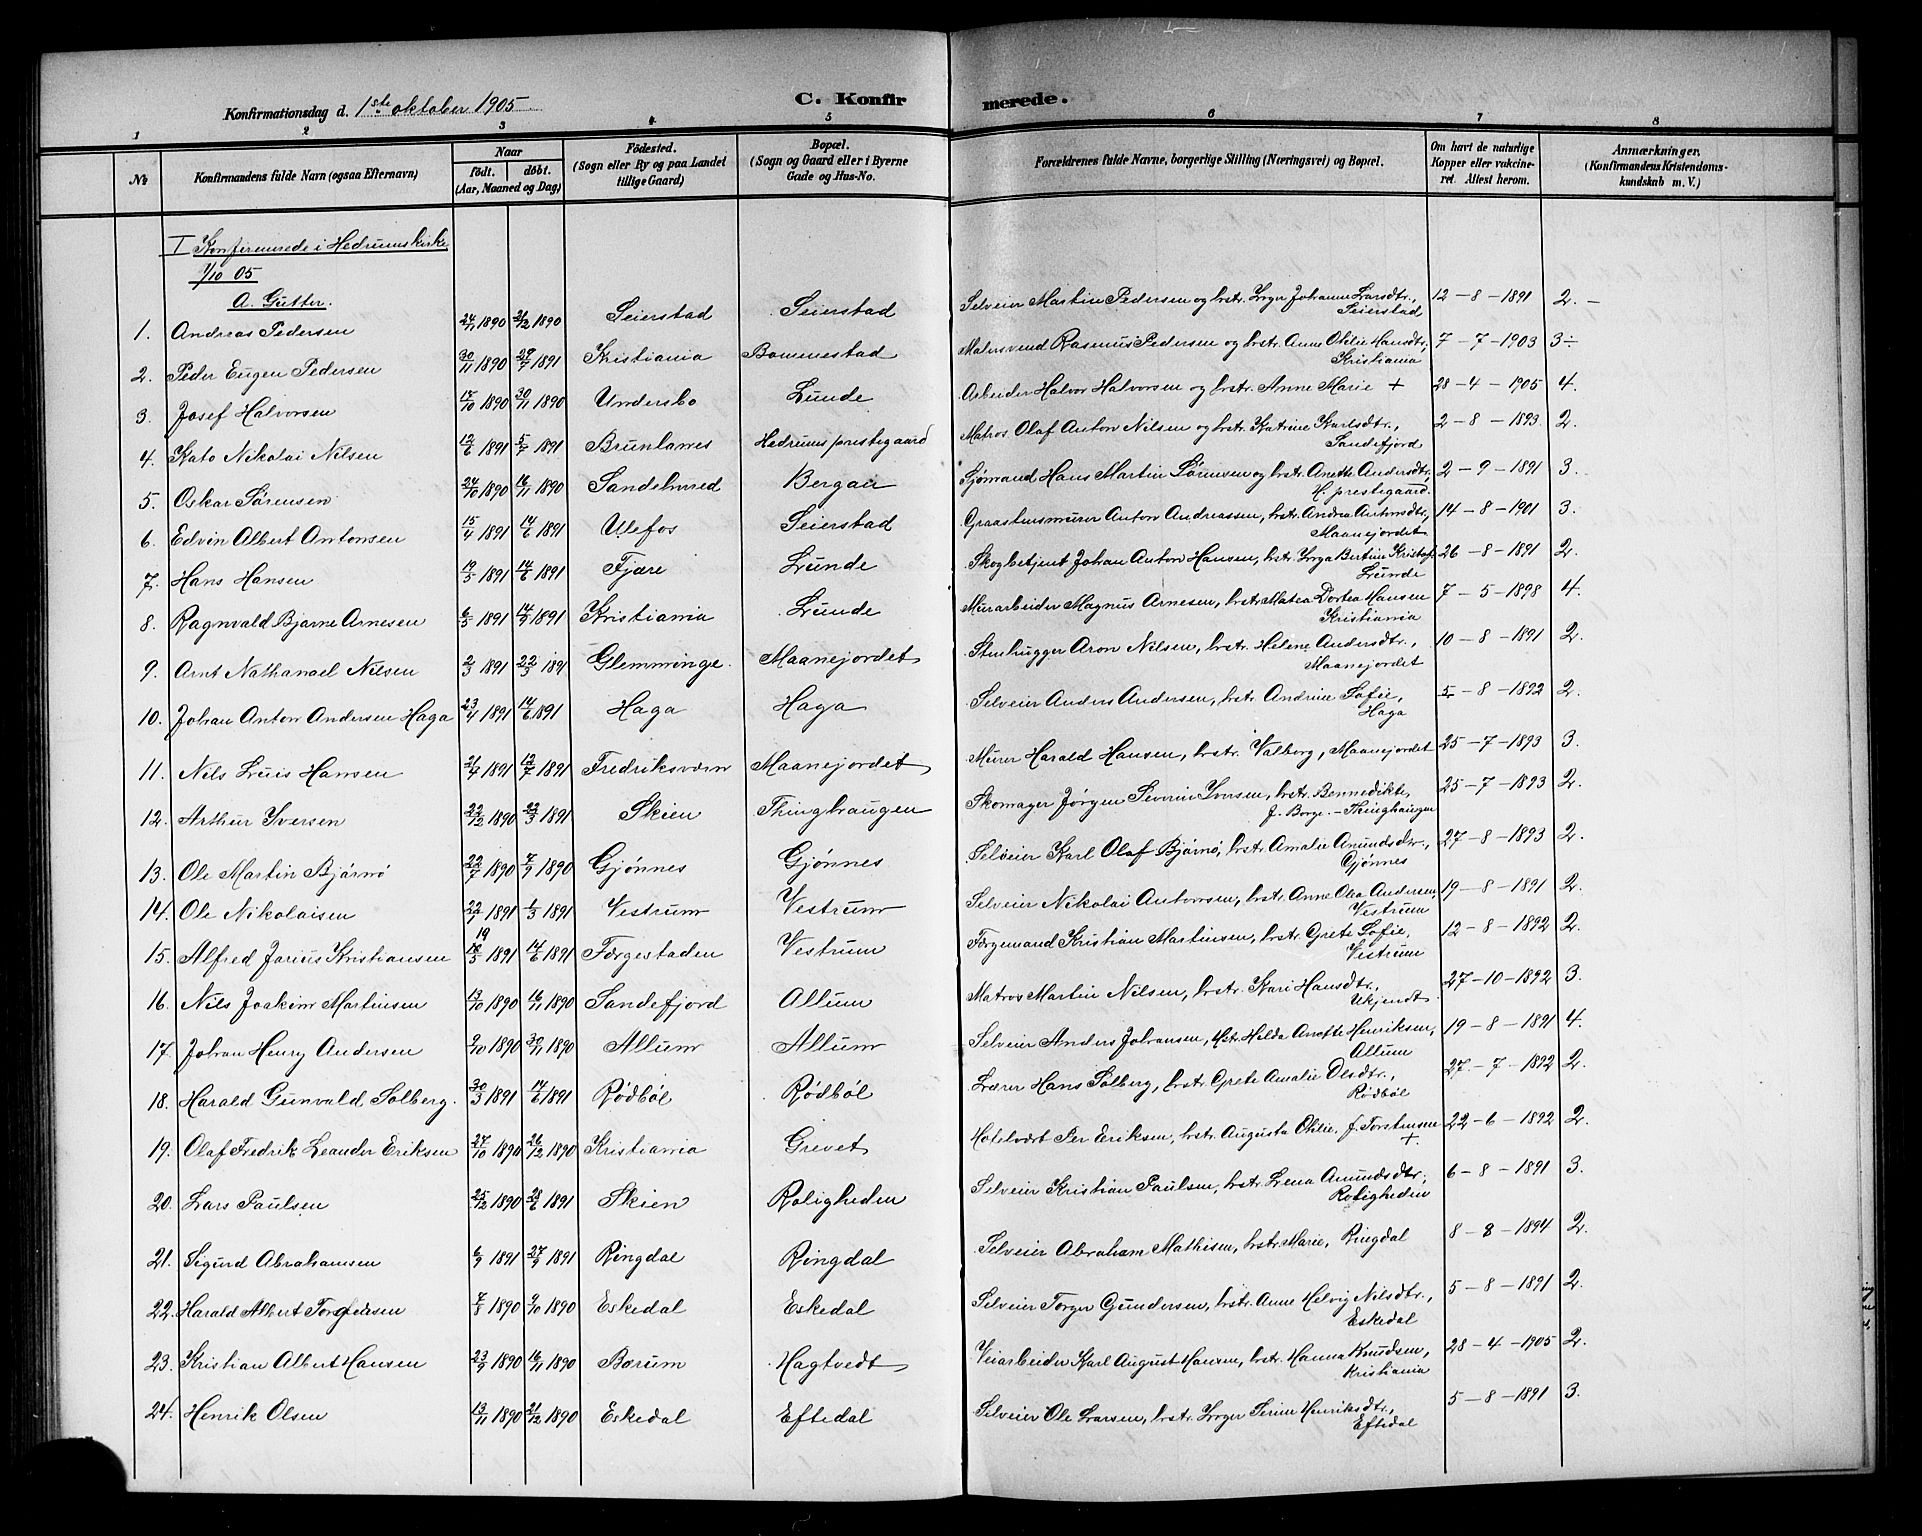 Konfirmationsdag d. 1ste oktober 1905 C. Konfirmerede.
1 2 3 4 5 6 7 8
No. Konfirmandens fulde Navn (ogsaa Efternavn) Naar født. døbt. (Aar, Maaned og Dag) Fødested. (Sogn eller By og paa Landet tillige Gaard) Bopæl. (Sogn og Gaard eller i Byerne Gade og Hus-No. Forældrenes fulde Navne, borgerlige Stilling (Næringsvei) og Bopæl. Om havt de naturlige Kopper eller vakcineret. Attest herom. Anmærkninger. (Konfirmandens Kristendomskundskab m. V.)
I Konfirmerede i Hedrums kirke
1/10 05
A. Gutter.
1. Andreas Pedersen 24/11 1890 21/12 1890 Seierstad Seierstad Selveier Martin Pedersen og hstr. Inger Johanne Larsdtr., Seierstad 12-8-1891 2.-
2. Peder Eugen Pedersen 30/11 1890 1891 Kristiania Bommestad Malersvend Rasmus Pedersen og hstr. Anne Othilie Hansdtr., Kristiania 7-7-1903 3÷
3. Josef Halvorsen 17/10 1890 30/11 1890 Undersbo Lunde Arbeider Halvor Halvorsen og hstr. Anne Marie + 28-4-1905 4.
4. Kato Nikolai Nilsen 12/6 1891 5/7 1891 Brunlanes Hedrums prestegaard Matros Olaf Anton Nilsen og hstr. Katrine Karlsdtr., Sandefjord 2-8-1893. 2.
5. Oskar Sørensen 24/10 1890 16/11 1890 Sandeherred Bergan Sjømand Hans Martin Sørensen og hstr. Anette Andersdtr., H. prestegaard. 2-9-1891 3.
6. Edvin Albert Antonsen 15/4 1891 14/6 1891 Ulefos Seierstad Graastensmurer Anton Andreassen, hstr. Andrea Antonsdtr., Maanejordet 14-8-1901 3.
7. Hans Hansen 19/5 1891 14/6 1891 Fjære Lunde Skogbetjent Johan Anton Hansen, hstr. Inga Bertine Kristofs. Lunde 26-8-1891 2.
8. Ragnvald Bjarne Arnesen 6/5 1891 1891 Kristiania Lunde Murarbeider Magnus Arnesen, hstr. Matea Dortea Hansen Kristiania 7-5-1898 4.
9. Arnt Nathanael Nilsen 2/3 1891 22/3 1891 Glemminge. Maanejordet Stenhugger Aron Nilsen, hstr. Helene Andersdtr., Maanejordet 10-8-1891 2.
10. Johan Anton Andersen Haga 23/4 1891 14/6 1891 Haga Haga Selveier Anders Andersen, hstr. Andrine Sofie, Haga 5-8-1892 2.
11. Nils Luis Hansen 21/4 1891 12/7 1891 Fredriksværn Maanejordet Murer Harald Hansen, hstr. Valborg, Maanejordet 25-7-1893 3.
12. Arthur Iversen 22/12 1890 22/3 1891 Skien Thinghaugen Skomager Jørgen Severin Iversen, hstr. Bennedikte, f. Borge.-Thinghaugen 25-7-1893 2.
13. Ole Martin Bjørnø 22/7 1890 7/9 1890 Gjønnes Gjønnes Selveier Karl Olaf Bjørnø, hstr. Amalie Amundsdtr., Gjønnes 27-8-1893 2.
14. Ole Nikolaisen 22/1 1891 1/3 1891 Vestrum Vestrum Selveier Nikolai Antonsen, hstr. Anne Olea Andersen, Vestrum 19-8-1891 2.
15. Alfred Jarius Kristiansen 19 18/5 1891 14/6 1891 Færgestaden Vestrum Færgemand Kristian Martinsen, hstr. Grete Sofie, Vestrum 12-8-1892 2.
16. Nils Joakim Martinsen 13/10 1890 16/11 1890 Sandefjord Allum Matros Martin Nilsen, hstr. Kari Hansdtr., Ukjendt 27-10-1892 3.
17. Johan Henry Andersen 9/10 1890 30/11 1890 Allum Allum Selveier Anders Johansen, Hstr. Helda Anette Henriksen, Allum 19-8-1891 4.
18. Harald Gunvald Solberg. 30/3 1891 14/6 1891 Rødbøl Rødbøl Lærer Hans Solberg, hstr. Grete Amalie Olsdtr., Rødbøl 27.-7-1892 2.
19. Olaf Fredrik Leander Eriksen 27/10 1890 26/12 1890 Kristiania Grevet Hotelvært Per Eriksen, hstr. Augusta Othilie. f. Torstensen + 22-6-1892 2.
20. Lars Paulsen 25/12 1890 28/6 1891 Skien Roligheden Selveier Kristian Paulsen, hstr. Lena Amundsdtr., Roligheden 6-8-1891 3.
21. Sigurd Abrahamsen 6/9 1891 27/9 1891 Ringdal Ringdal Selveier Abraham Mathisen, hstr. Marie, Ringdal 8-8-1894 2.
22. Harald Albert Torgersen 1890 9/10 1890 Eskedal Eskedal Selveier Torger Gundersen, hstr. Anne Helvig Nilsdtr., Eskedal 5-8-1891 2.
23. Kristian Albert Hansen 23/9 1890 16/11 1890 Bærum Hagtvedt Veiarbeider Karl August Hansen, hstr. Hanna Knudsen, Kristiania 28-4-1905 2.
24. Henrik Olsen 13/11 1890 21/12 1890 Eskedal Eftedal Selveier Ole Larsen, hstr. Inger Serine Henriksdtr., Eftedal 5-8-1891 3.